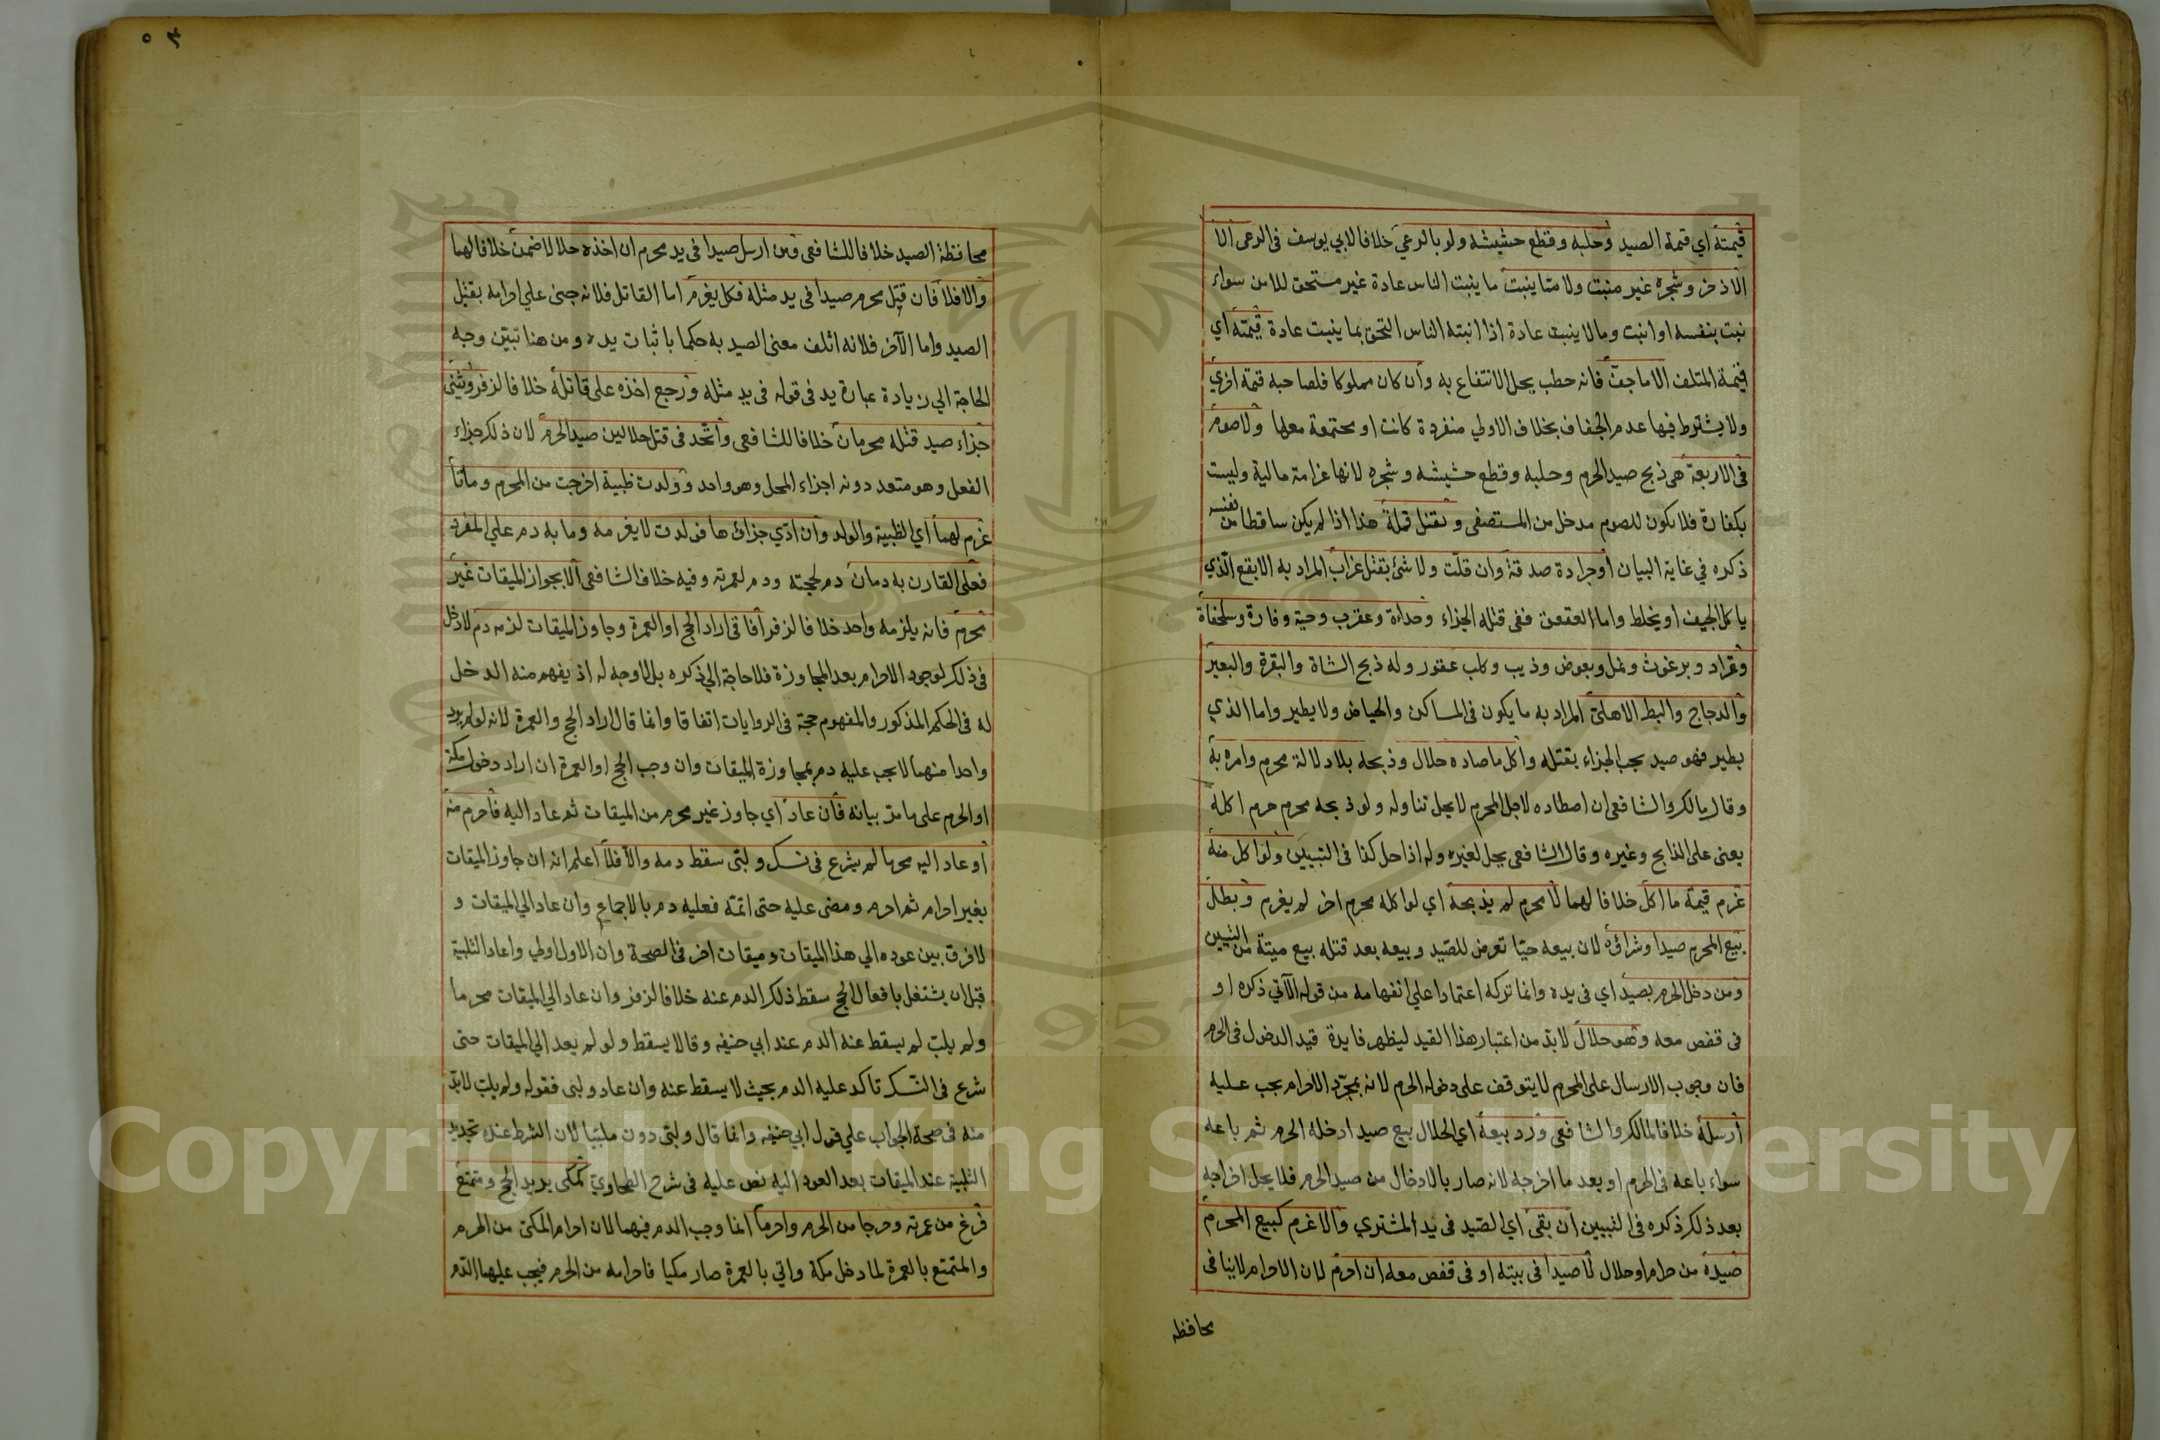 قيمته اي قيمة الصيد وحلبه وقطع حشيشه ولو بالرعي خلافا لابي يوسف في الرعي الا
الاذخر وشجره غير منبت ولا مما ينبت ما ينبت الناس عادة غير مستحق للامن سواء
نبت بنفسه او انبت وما لا ينبت عادة اذا انبته الناس التحق بما ينبت عادة قيمته اي
قيمة المتلف الا ما جف فانه حطب يحل الانتفاع به وان كان مملوكا فلصاحبه قيمة اخري
ولا يشترط فيها عدم الجفاف بخلاف الاولي منفردة كانت او مجتمعة معها ولا صوم
في الاربعة هي ذبح صيد الحرم وحلبه وقطع حشيشه وشجره لانها غرامة مالية وليست
بكفارة فلا يكون للصوم مدخل من المستصفى وبقتل قملة هذا اذا لم يكن ساقطا من نفسه
ذكره في غاية البيان او جرادة صدقة وان قلت ولا شئ بقتل غراب المراد به الابقع الذي
ياكل الجيف او يخلط واما العقعق ففي قتله الجزاء وحداءة وعقرب وحية وفارة وسلحفاة
وقراد وبرغوث ونمل وبعوض وذيب وكلب عقور وله ذبح الشاة والبقرة والبعير
والدجاج والبط الاهلي المراد به ما يكون في المساكن والحياض ولا يطير واما الذي
يطير فهو صيد يجب الجزاء بقتله واكل ما صاده حلال وذبحه بلا دلالة محرم وامره به
وقال مالك والشافعي ان اصطاده لاجل المحرم لا يحل تناوله ولو ذبحه محرم حرم اكله
يعني على الذابح وغيره وقال الشافعي يحل لغيره وله اذا حل كذا في التبيين ولو اكل منه
غرم قيمة ما اكل خلافا لهما لا محرم لم يذبحه اي لو اكله محرم اخر لم يغرم وبطل
بيع المحرم صيدا وشراؤه لان بيعه حيا تعرض للصيد وبيعه بعد قتله بيع ميتة من التبيين
ومن دخل الحرم بصيد اي في يده وانما تركه اعتمادا علي انفهامه من قوله الآتي ذكره او
في قفص معه وهو حلال لابد من اعتبار هذا القيد ليظهر فايدة قيد الدخول في الحرم
فان وجوب الارسال على المحرم لا يتوقف على دخوله الحرم لانه بمجرد الاحرام يجب عليه
ارسله خلافا لمالك والشافعي ورد بيعه اي الحلال بيع صيد ادخله الحرم ثم باعه
سواء باعه في الحرم او بعد ما اخرجه لانه صار بالادخال من صيد الحرم فلا يحل اخراجه
بعد ذلك ذكره في التبيين ان بقى اي الصيد في يد المشتري والا غرم كبيع المحرم
صيده من حرام او حلال لا صيدا في بيته او في قفص معه ان احرم لان الاحرام لا ينافي
محافظة
محافظة الصيد خلافا للشافعي ومن ارسل صيدا في يد محرم ان اخذه حلالا ضمن خلافا لهما
والا فلا فان قتل محرم صيدا في يد مثله فكل يغرم اما القاتل فلانه جنى علي احرامه بقتل
الصيد واما الآخر فلانه اتلف معنى الصيد به حكما باثبات يده ومن هنا تبين وجه
الحاجة الي زيادة عبارة يد في قوله في يد مثله ورجع اخذه على قاتله خلافا لزفر وثنى
جزاء صيد قتله محرمان خلافا للشافعي واتحد في قتل حلالين صيد الحرم لان ذلك جزاء
الفعل وهو متعدد دونه اجزاء المحل وهو واحد وولدت ظبية اخرجت من الحرم وماتا
غرم لهما اي الظبية والولد وان ادي جزاؤها فولدت لا يغرمه وما به دم علي المفرد
فعلى القارن به دمان دم لحجته ودم لعمرته وفيه خلاف الشافعي الا بجواز الميقات غير
محرم فانه يلزمه واحد خلافا لزفر آفاقي اراد الحج او العمرة وجاوز الميقات لزمه دم لا دخل
في ذلك لوجود الاحرام بعد المجاوزة فلا حاجة الي ذكره بل لا وجه له اذ يفهم منه الدخل
له في الحكم المذكور والمفهوم حجة في الروايات اتفاقا وانما قال اراد الحج والعمرة لانه لو لم يرد
واحدا منهما لا يجب عليه دم بمجاوزة الميقات وان وجب الحج او العمرة ان اراد دخول مكة
او الحرم على ما مر بيانه فان عاد اي جاوز غير محرم من الميقات ثم عاد اليه فاحرم منه
او عاد اليه محرما لم يشرع في نسك ولبى سقط دمه والا فلا اعلم انه ان جاوز الميقات
بغير احرام ثم احرم ومضى عليه حتى اتمه فعليه دم بالاجماع وان عاد الي الميقات و
لا فرق بين عوده الي هذا الميقات وميقات اخر في الصحة وان الاول اولي واعاد التلبية
قبل ان يشتغل بافعال الحج سقط ذلك الدم عنه خلافا لزفر وان عاد الي الميقات محرما
ولم يلب لم يسقط عنه الدم عند ابي حنيفه وقالا يسقط ولو لم يعد الي الميقات حتى
شرع في النسك تاكد عليه الدم بحيث لا يسقط عنه وان عاد ولبى فقوله ولم يلب لابد
منه في صحة الجواب علي قول ابي حنيفه وانما قال ولبى دون ملبيا لان الشرط عنده تجديد
التلبية عند الميقات بعد العود اليه نص عليه في شرح الطحاوي كمكي يريد الحج ومتمتع
فرغ من عمرته وخرجا من الحرم واحرما انما وجب الدم فيهما لان احرام المكي من الحرم
والمتمتع بالعمرة لما دخل مكة واتي بالعمرة صار مكيا فاحرامه من الحرم فيجب عليهما الدم
Copyright © King Saud University
1957